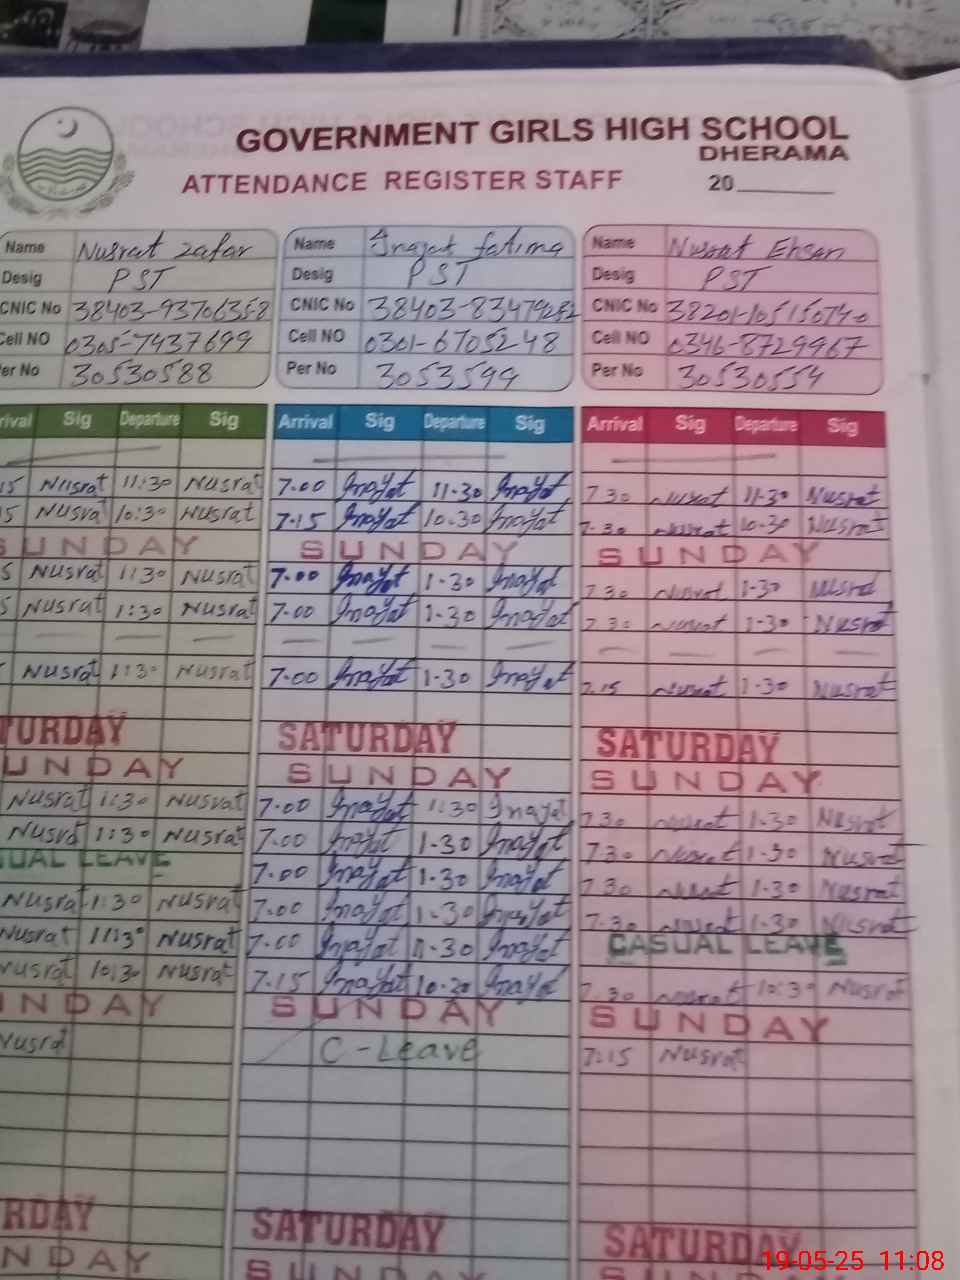 GOVERNMENT GIRLS HIGH SCHOOL
DHERAMA
ATTENDANCE REGISTER STAFF 20
Name Nusrat Zafar Name Inayat fatima Name Nusrat Ehsan
Desig PST Desig PST Desig PST
CNIC No CNIC No CNIC No
Cell NO 0305-7437699 Cell NO 0301-6705248 Cell NO 0346-8729967
Per No 30530588 Per No 3053599 Per No 30530554
Sig Departure Sig Arrival Sig Departure Sig Arrival Sig Departure Sig
15 Nusrat 11:30 Nusrat 7-00 Inayat 11-30 Inayat 7 30 Nusrat 11-30 Nusrat
5 Nusrat 10:30 Nusrat 7-15 Inayat 10-30 Inayat 7-30 Nusrat 10-30 Nusrat
SUNDAY SUNDAY SUNDAY
5 Nusrat 1:30 Nusrat 7-00 Inayat 1-30 Inayat 7 30 Nusrat 1-30
5 Nusrat 1:30 Nusrat 7-00 Inayat 1-30 Inayat 7 30 Nusrat 1-30 Nusrat
Nusrat 1:30 Nusrat 7-00 Inayat 1-30 Inayat 7.15 Nusrat 1-30 Nusrat
TURDAY SATURDAY SATURDAY
UNDAY SUNDAY SUNDAY
Nusrat 1:30 Nusrat 7-00 Inayat 1:30 Inayat 7 30 Nusrat 1-30 Nusrat
Nusrat 1:30 Nusrat 7-00 Inayat 1-30 Inayat 7 30 Nusrat 1-30 Nusrat
UAL LEAVE 7-00 Inayat 1-30 Inayat 7 30 Nusrat 1-30 Nusrat
Nusrat 1:30 Nusrat 7-00 Inayat 1-30 Inayat 7-30 Nusrat 1-30 Nusrat
Nusrat Nusrat 7-00 Inayat 11-30 Inayat CASUAL LEAVE
Nusrat 10:30 Nusrat 7-15 Inayat Inayat 7-30 Nusrat 10:30 Nusrat
NDAY SUNDAY SUNDAY
Nusrat C-Leave 7:15 Nusrat
RDAY SATURDAY SATURDAY
NDAY SUNDAY SUNDAY
19-05-25 11:08